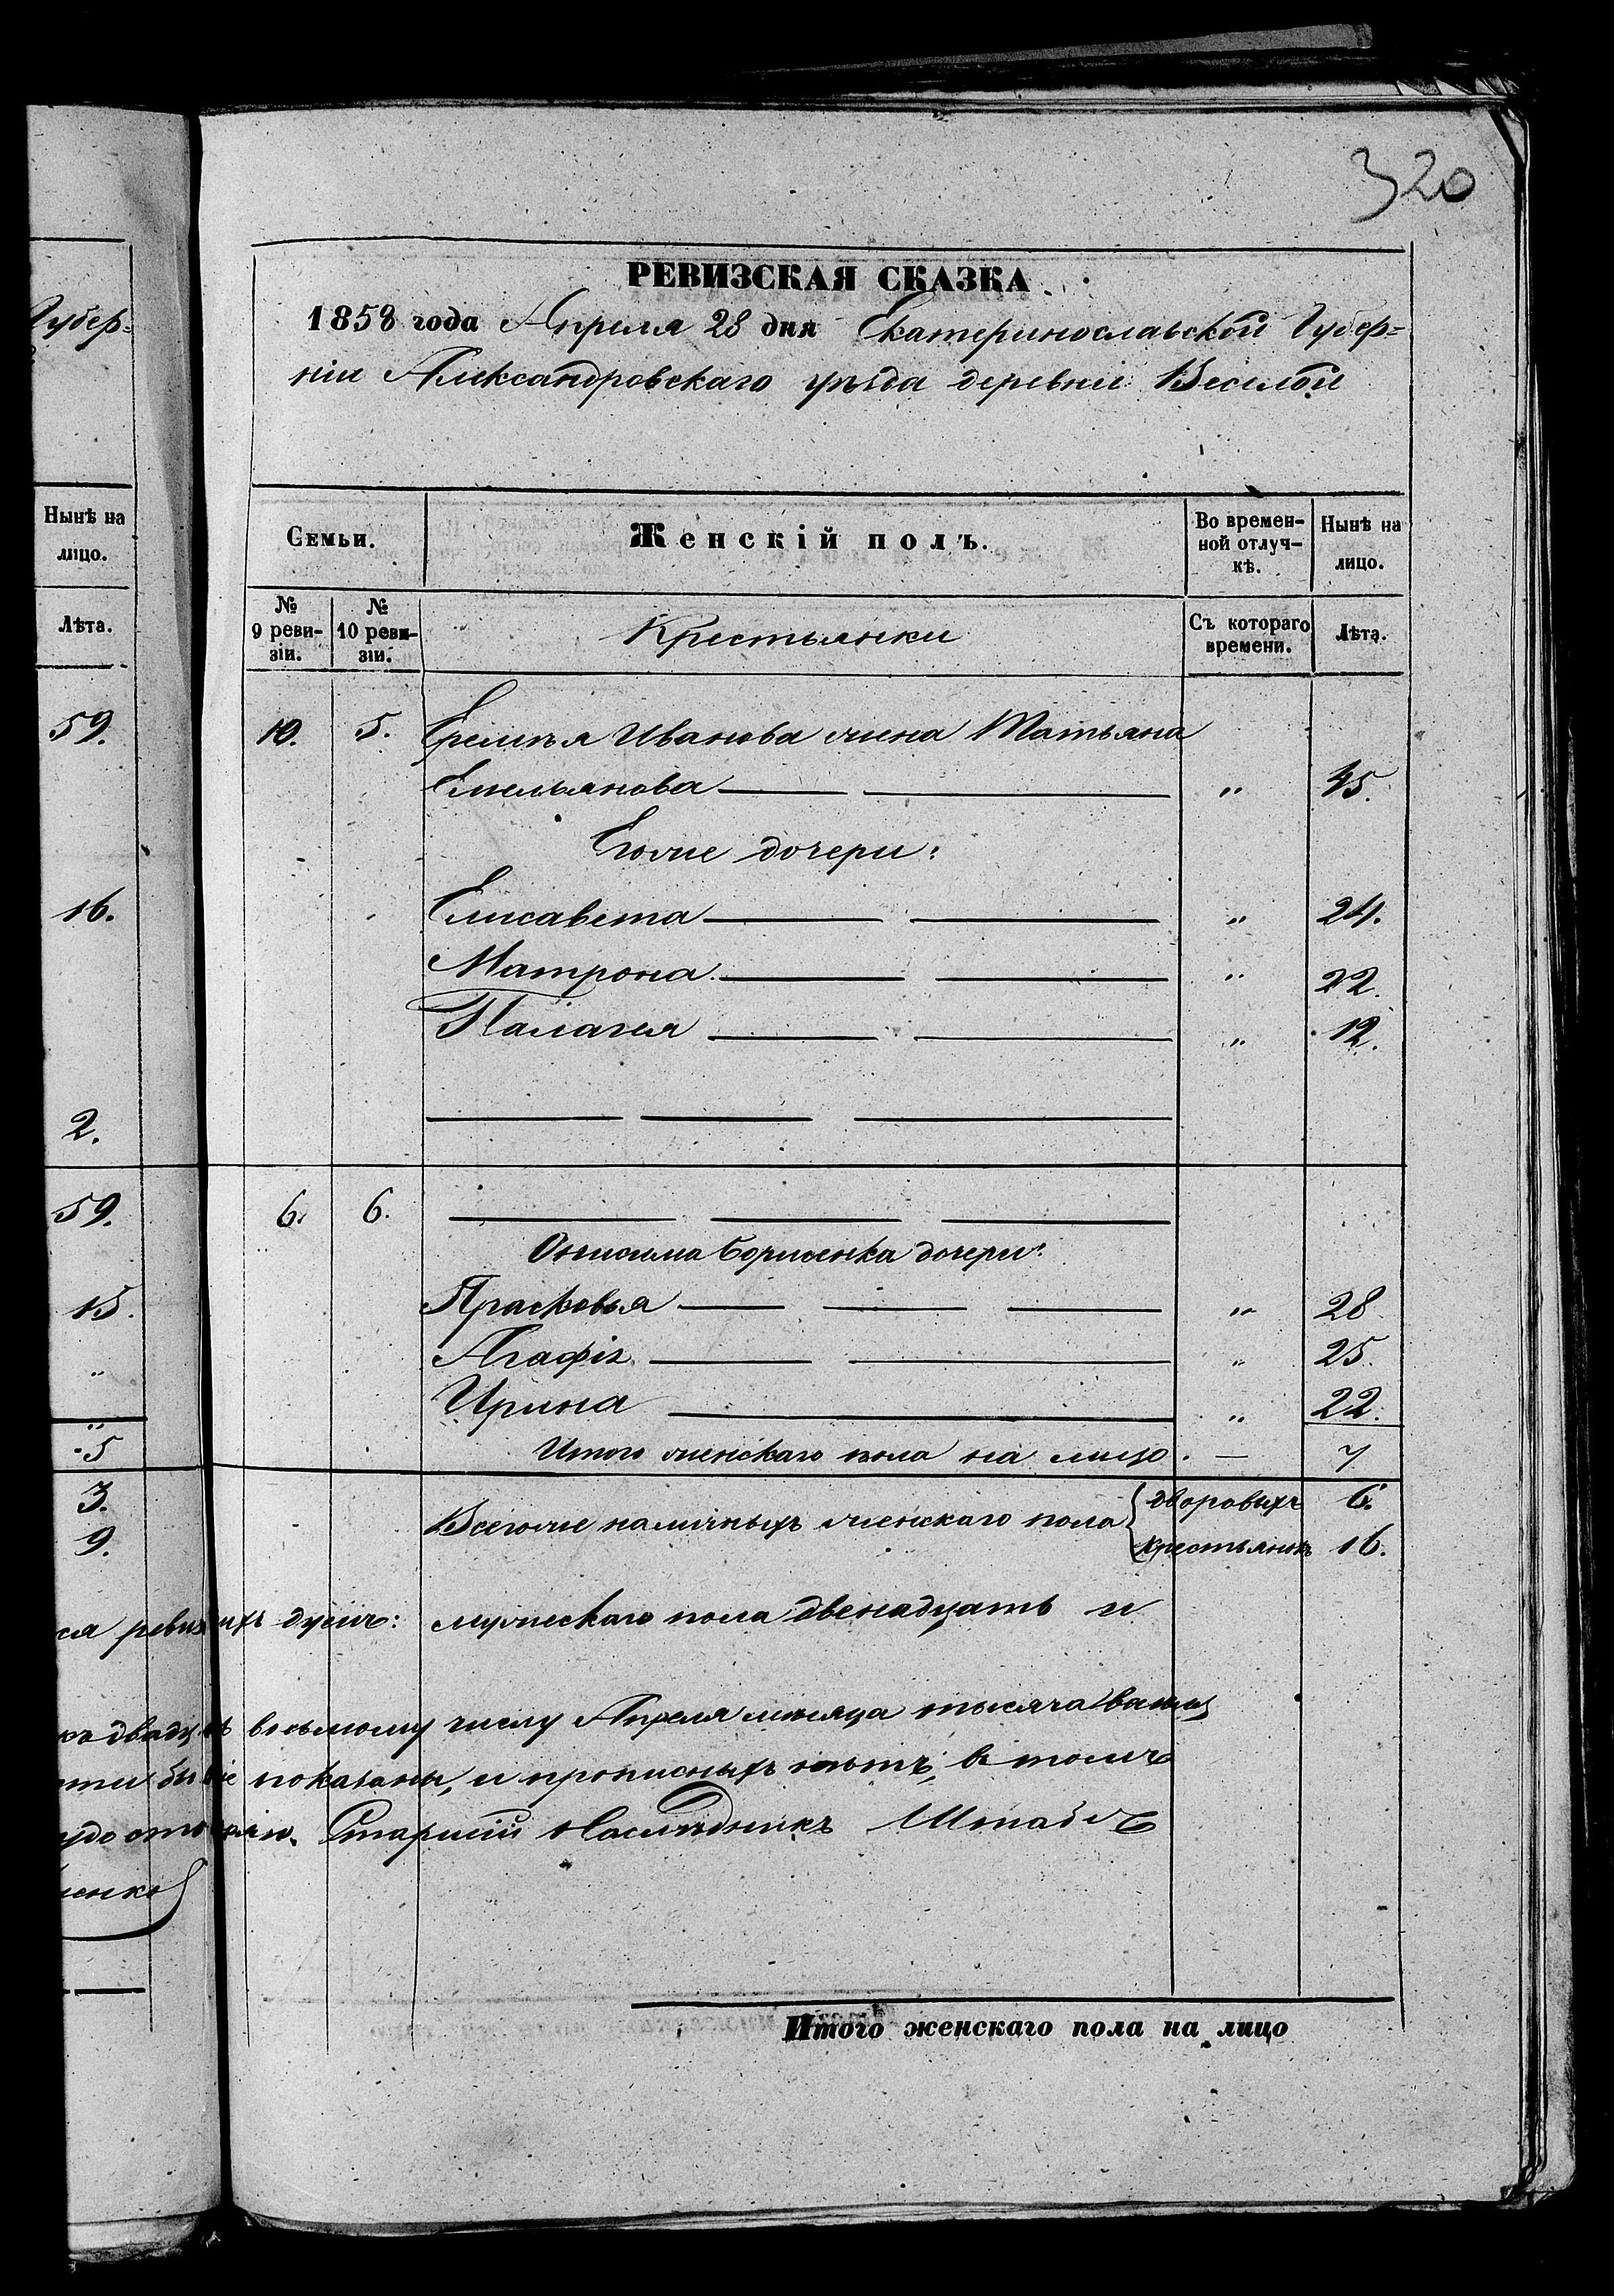 320
РЕВИЗСКАЯ СКАЗКА
1858 года Апреля 28 дня Екатеринославской Губер=
ніи Александровскаго уѣзда деревни Веселой
Губер=
Нынѣ на
лицо.
Лѣта.
59.
16.
2.
59.
15.
"
"
5
3.
9.
Семьи.
Женскій полъ.
Во времен-
ной отлуч-
кѣ.
Нынѣ на
лицо.
№
9 реви-
зіи.
№
10 реви-
зіи.
Крестьянки
Съ котораго
времени.
Лѣта.
10. 5. Еремѣя Иванова жена Татьяна
Емельянова " 45.
Егоже дочери:
Елисавета " 24.
Матрона " 22.
Палагея " 12.
6. 6.
Онисима Борисенка дочери:
Прасковья " 28
Агафія " 25.
Ирина " 22.
Итого женскаго пола на лицо. — 7
Всегоже наличныхъ женскаго пола { дворовыхъ 6.
крестьянокъ 16.
ся ревизскихъ душъ: мужескаго пола двенадцать и
восьмому числу Апреля месяца тысяча
показаны, и прописныхъ нѣтъ, въ томъ
Старшій Наслѣдникъ Штабсъ
енко
Итого женскаго пола на лицо